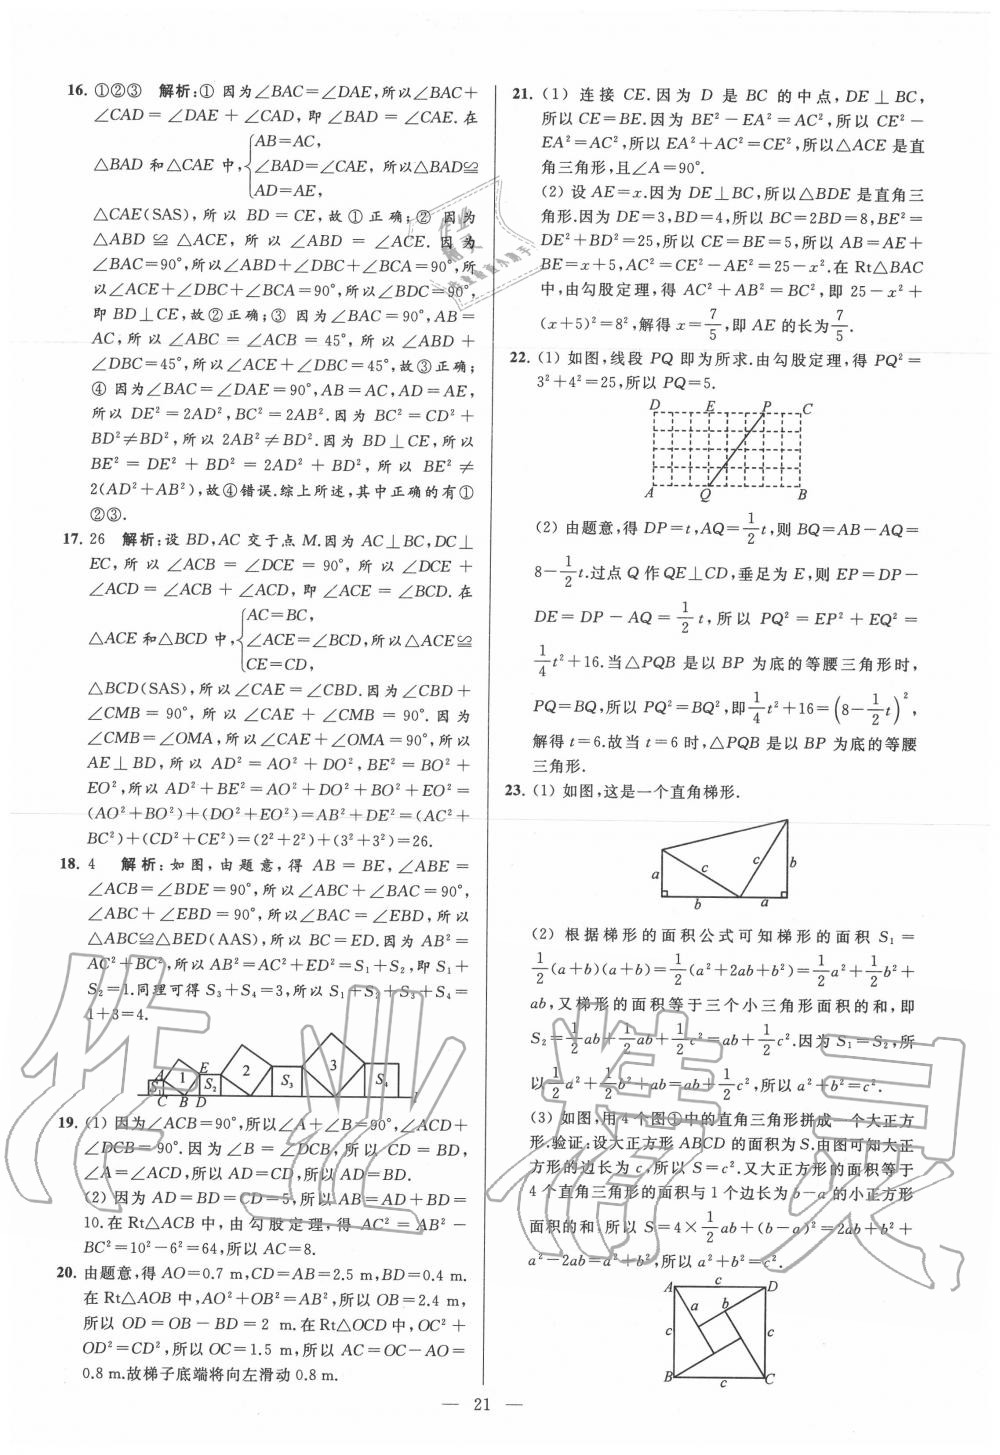 16. ①②③ 解析:① 因为∠BAC=∠DAE,所以∠BAC+
∠CAD=∠DAE+∠CAD,即∠BAD=∠CAE.在
AB=AC,
△BAD 和△CAE 中, ∠BAD=∠CAE, 所以△BAD≌
AD=AE,
△CAE(SAS),所以 BD=CE,故①正确;② 因为
△ABD≌△ACE,所以∠ABD=∠ACE.因为
∠BAC=90°,所以∠ABD+∠DBC+∠BCA=90°,所
以∠ACE+∠DBC+∠BCA=90°,所以∠BDC=90°,
即 BD⊥CE,故②正确;③ 因为∠BAC=90°,AB=
AC,所以∠ABC=∠ACB=45°,所以∠ABD+
∠DBC=45°,所以∠ACE+∠DBC=45°,故③正确;
④ 因为∠BAC=∠DAE=90°,AB=AC,AD=AE,
所以 DE²=2AD²,BC²=2AB².因为 BC²=CD²+
BD²≠BD²,所以 2AB²≠BD².因为 BD⊥CE,所以
BE²=DE²+BD²=2AD²+BD²,所以 BE²≠
2(AD²+AB²),故④错误.综上所述,其中正确的有①
②③.
17. 26 解析:设 BD,AC 交于点 M.因为 AC⊥BC,DC⊥
EC,所以∠ACB=∠DCE=90°,所以∠DCE+
∠ACD=∠ACB+∠ACD,即∠ACE=∠BCD.在
AC=BC,
△ACE 和△BCD 中, ∠ACE=∠BCD,所以△ACE≌
CE=CD,
△BCD(SAS),所以∠CAE=∠CBD.因为∠CBD+
∠CMB=90°,所以∠CAE+∠CMB=90°.因为
∠CMB=∠OMA,所以∠CAE+∠OMA=90°,所以
AE⊥BD,所以 AD²=AO²+DO²,BE²=BO²+
EO²,所以 AD²+BE²=AO²+DO²+BO²+EO²=
(AO²+BO²)+(DO²+EO²)=AB²+DE²=(AC²+
BC²)+(CD²+CE²)=(2²+2²)+(3²+3²)=26.
18. 4 解析:如图,由题意,得 AB=BE,∠ABE=
∠ACB=∠BDE=90°,所以∠ABC+∠BAC=90°,
∠ABC+∠EBD=90°,所以∠BAC=∠EBD,所以
△ABC≌△BED(AAS),所以 BC=ED.因为 AB²=
AC²+BC²,所以 AB²=AC²+ED²=S₁+S₂,即 S₁+
S₂=1.同理可得 S₃+S₄=3,所以 S₁+S₂+S₃+S₄=
1+3=4.
A E S₁ 1 S₂ 2 S₃ 3 S₄
C B D l
19. (1) 因为∠ACB=90°,所以∠A+∠B=90°,∠ACD+
∠DCB=90°.因为∠B=∠DCB,所以 CD=BD,
∠A=∠ACD,所以 AD=CD,所以 AD=BD.
(2) 因为 AD=BD=CD=5,所以 AB=AD+BD=
10.在 Rt△ACB 中,由勾股定理,得 AC²=AB²−
BC²=10²−6²=64,所以 AC=8.
20. 由题意,得 AO=0.7 m,CD=AB=2.5 m,BD=0.4 m.
在 Rt△AOB 中,AO²+OB²=AB²,所以 OB=2.4 m,
所以 OD=OB−BD=2 m.在 Rt△OCD 中,OC²+
OD²=CD²,所以 OC=1.5 m,所以 AC=OC−AO=
0.8 m.故梯子底端将向左滑动 0.8 m.
21. (1) 连接 CE.因为 D 是 BC 的中点,DE⊥BC,
所以 CE=BE.因为 BE²−EA²=AC²,所以 CE²−
EA²=AC²,所以 EA²+AC²=CE²,所以△ACE 是直
角三角形,且∠A=90°.
(2) 设 AE=x.因为 DE⊥BC,所以△BDE 是直角三
角形.因为 DE=3,BD=4,所以 BC=2BD=8,BE²=
DE²+BD²=25,所以 CE=BE=5,所以 AB=AE+
BE=x+5,AC²=CE²−AE²=25−x².在 Rt△BAC
中,由勾股定理,得 AC²+AB²=BC²,即 25−x²+
(x+5)²=8²,解得 x=7/5,即 AE 的长为7/5.
22. (1) 如图,线段 PQ 即为所求.由勾股定理,得 PQ²=
3²+4²=25,所以 PQ=5.
D E P C
A Q B
(2) 由题意,得 DP=t,AQ=1/2t,则 BQ=AB−AQ=
8−1/2t.过点 Q 作 QE⊥CD,垂足为 E,则 EP=DP−
DE=DP−AQ=1/2t,所以 PQ²=EP²+EQ²=
1/4t²+16.当△PQB 是以 BP 为底的等腰三角形时,
PQ=BQ,所以 PQ²=BQ²,即1/4t²+16=(8−1/2t)²,
解得 t=6.故当 t=6 时,△PQB 是以 BP 为底的等腰
三角形.
23. (1) 如图,这是一个直角梯形.
a c c b
b a
(2) 根据梯形的面积公式可知梯形的面积 S₁=
1/2(a+b)(a+b)=1/2(a²+2ab+b²)=1/2a²+1/2b²+
ab,又梯形的面积等于三个小三角形面积的和,即
S₂=1/2ab+1/2ab+1/2c²=ab+1/2c².因为 S₁=S₂,所
以1/2a²+1/2b²+ab=ab+1/2c²,所以 a²+b²=c².
(3) 如图,用 4 个图①中的直角三角形拼成一个大正方
形.验证:设大正方形 ABCD 的面积为 S.由图可知大正
方形的边长为 c,所以 S=c².又大正方形的面积等于
4 个直角三角形的面积与 1 个边长为 b−a 的小正方形
面积的和,所以 S=4×1/2ab+(b−a)²=2ab+b²+
a²−2ab=a²+b²,所以 a²+b²=c².
A c D
a b
c c
B c C
— 21 —
作业精灵